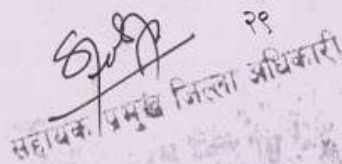 २९
सहायक प्रमुख जिल्ला अधिकारी